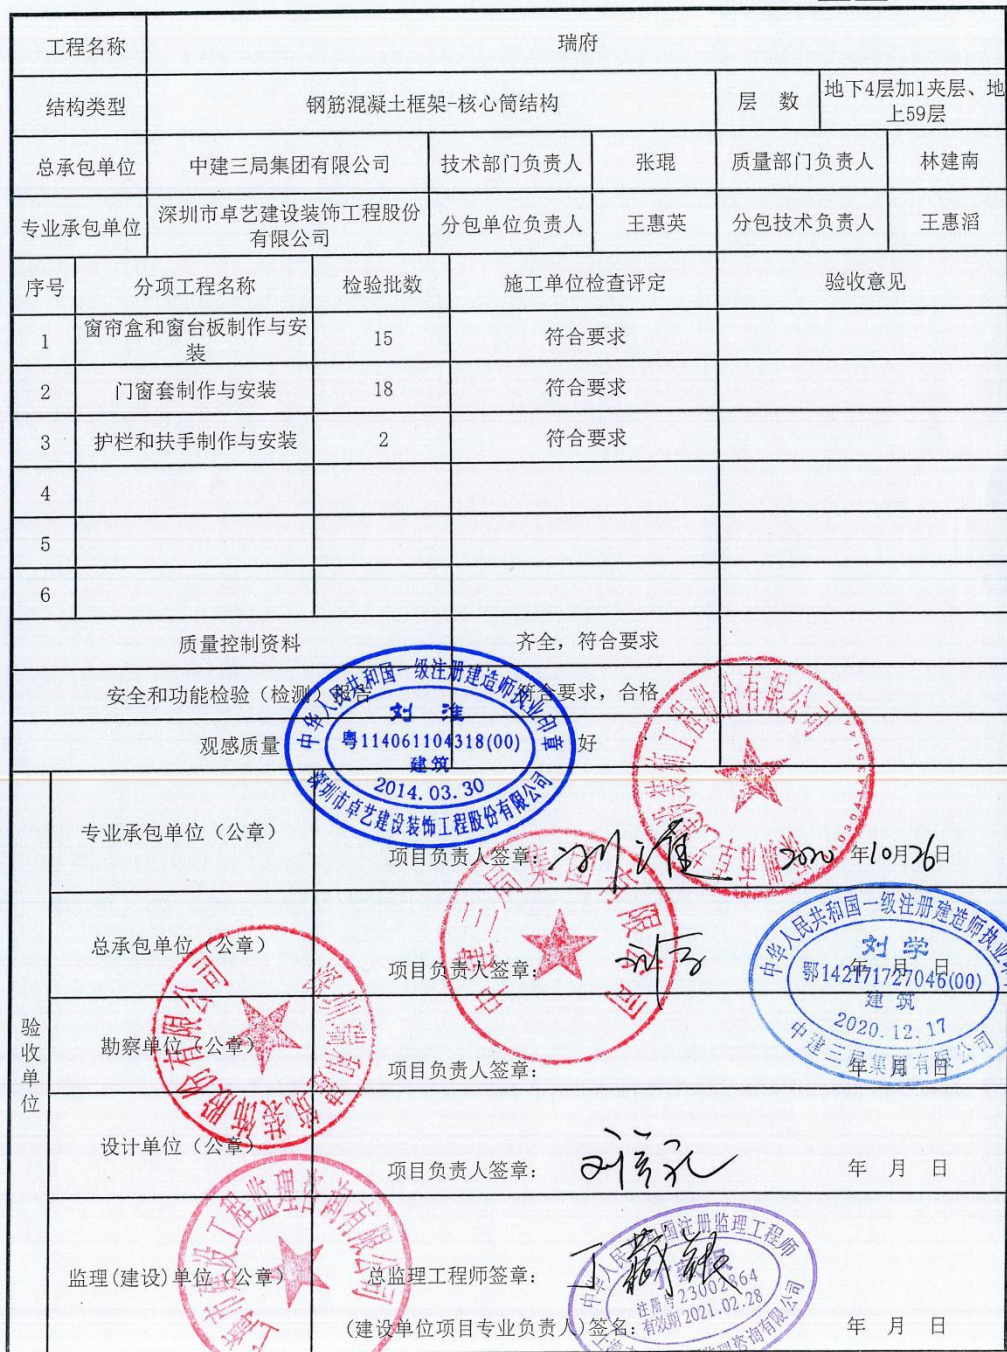 工程名称 瑞府
结构类型 钢筋混凝土框架-核心筒结构 层 数 地下4层加1夹层、地
上59层
总承包单位 中建三局集团有限公司 技术部门负责人 张琨 质量部门负责人 林建南
专业承包单位 深圳市卓艺建设装饰工程股份
有限公司 分包单位负责人 王惠英 分包技术负责人 王惠滔
序号 分项工程名称 检验批数 施工单位检查评定 验收意见
1 窗帘盒和窗台板制作与安
装 15 符合要求
2 门窗套制作与安装 18 符合要求
3 护栏和扶手制作与安装 2 符合要求
4
5
6
质量控制资料 齐全，符合要求
安全和功能检验（检测）报告 符合要求，合格
观感质量 好
中华人民共和国一级注册建造师执业印章
刘 淮
粤114061104318(00)
建筑
2014.03.30
深圳市卓艺建设装饰工程股份有限公司
验收单位
专业承包单位（公章）
项目负责人签章： 刘淮 2020 年10月26日
总承包单位（公章）
中建三局集团有限公司
项目负责人签章： 年 月 日
中华人民共和国一级注册建造师执业
刘 学
鄂142171727046(00)
建 筑
2020.12.17
中建三局集团有限公司
勘察单位（公章）
项目负责人签章： 年 月 日
深圳瑞和建筑装饰股份有限公司
设计单位（公章）
项目负责人签章： 年 月 日
监理(建设)单位（公章）
市建设工程监理咨询有限公司
总监理工程师签章：
中华人民共和国注册监理工程师
注册号23002864
有效期2021.02.28
(建设单位项目专业负责人)签名： 年 月 日